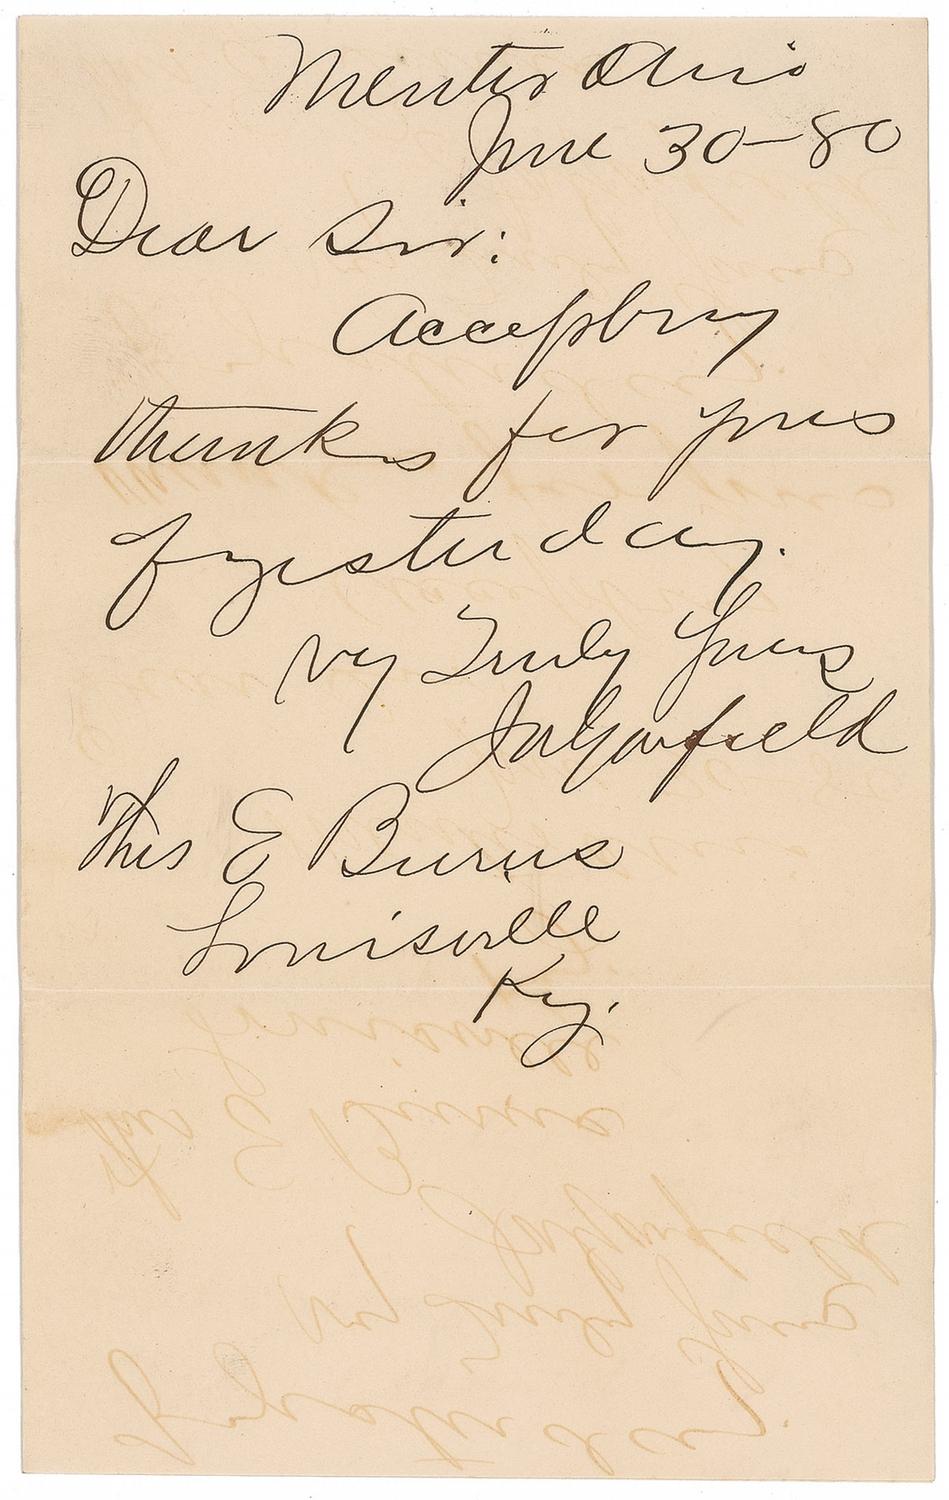 Mentor Ohio
June 30-80
Dear Sir:
Accept my
thanks for yours
of yesterday.
Vy Truly Yours
JAGarfield
Thos E Burns
Louisville
Ky.